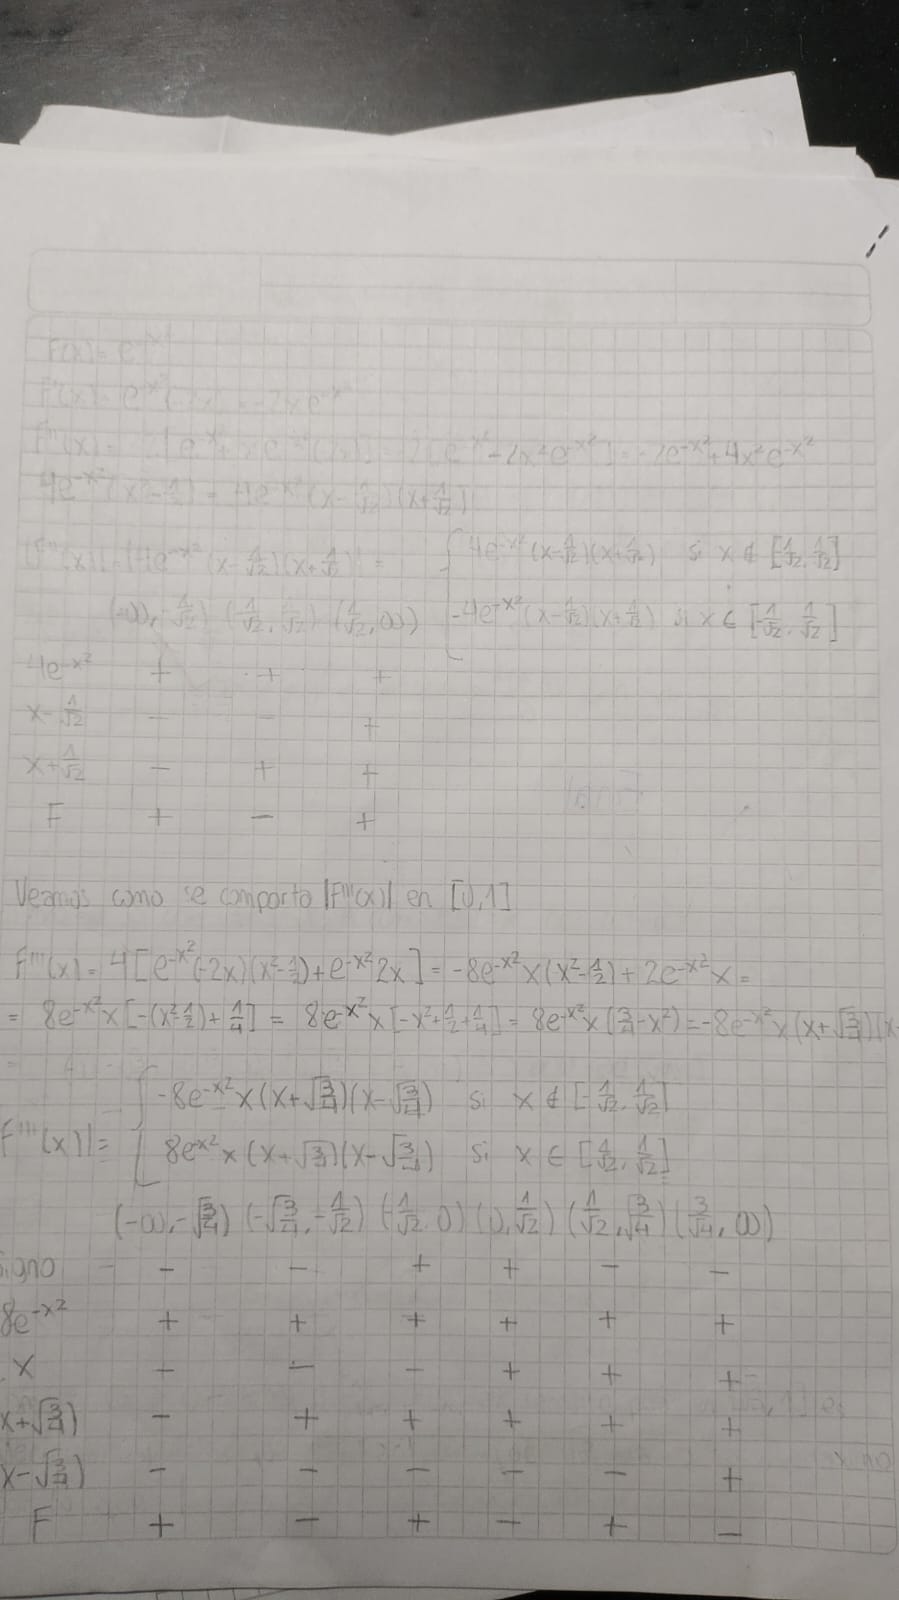 F(x) = e^-x²
F'(x) = e^-x² (-2x) = -2xe^-x²
F''(x) = [e^-x² + x e^-x² ] = 2[e^-x² - 2x²e^-x²] = -2e^-x² + 4x²e^-x²
4e^-x² (x² - 1/2) = 4e^-x² (x - 1/√2)(x + 1/√2)
|F''(x)| = |4e^-x² (x - 1/√2)(x + 1/√2)| = { 4e^-x² (x - 1/√2)(x + 1/√2) si x ∉ [1/√2, 1/√2]
(-∞, -1/√2) (1/√2, 1/√2) (1/√2, ∞) -4e^-x² (x - 1/√2)(x + 1/√2) si x ∈ [-1/√2, 1/√2]
4e^-x² + + +
x - 1/√2 - - +
x + 1/√2 - + +
F + - +
Veamos como se comporta |F'''(x)| en [0,1]
F'''(x) = 4[e^-x² (-2x)(x² - 1/2) + e^-x² 2x] = -8e^-x² x(x² - 1/2) + 2e^-x² x =
= 8e^-x² x[-(x² - 1/2) + 1/4] = 8e^-x² x[-x² + 1/2 + 1/4] = 8e^-x² x(3/4 - x²) = -8e^-x² x(x + √3/4)(x-
F'''(x)| = { -8e^-x² x(x + √3/4)(x - √3/4) si x ∉ [-1/√2, 1/√2]
8e^x² x(x + √3/4)(x - √3/4) si x ∈ [1/√2, 1/√2]
(-∞, -√3/4) (-√3/4, -1/√2) (-1/√2, 0) (0, 1/√2) (1/√2, √3/4) (3/√4, ∞)
signo - - + + - -
8e^-x² + + + + + +
x - - - + + +
x + √3/4) - + + + + +
x - √3/4) - - - - - +
F + - + - + -